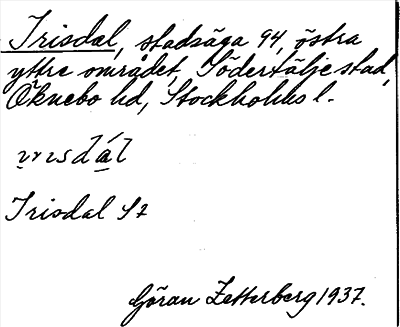 Irisdal, stadsäga 94, östra
yttre området, Södertälje stad,
Öknebo hd, Stockholms l.
Irisdal
Göran Zetterberg 1937.